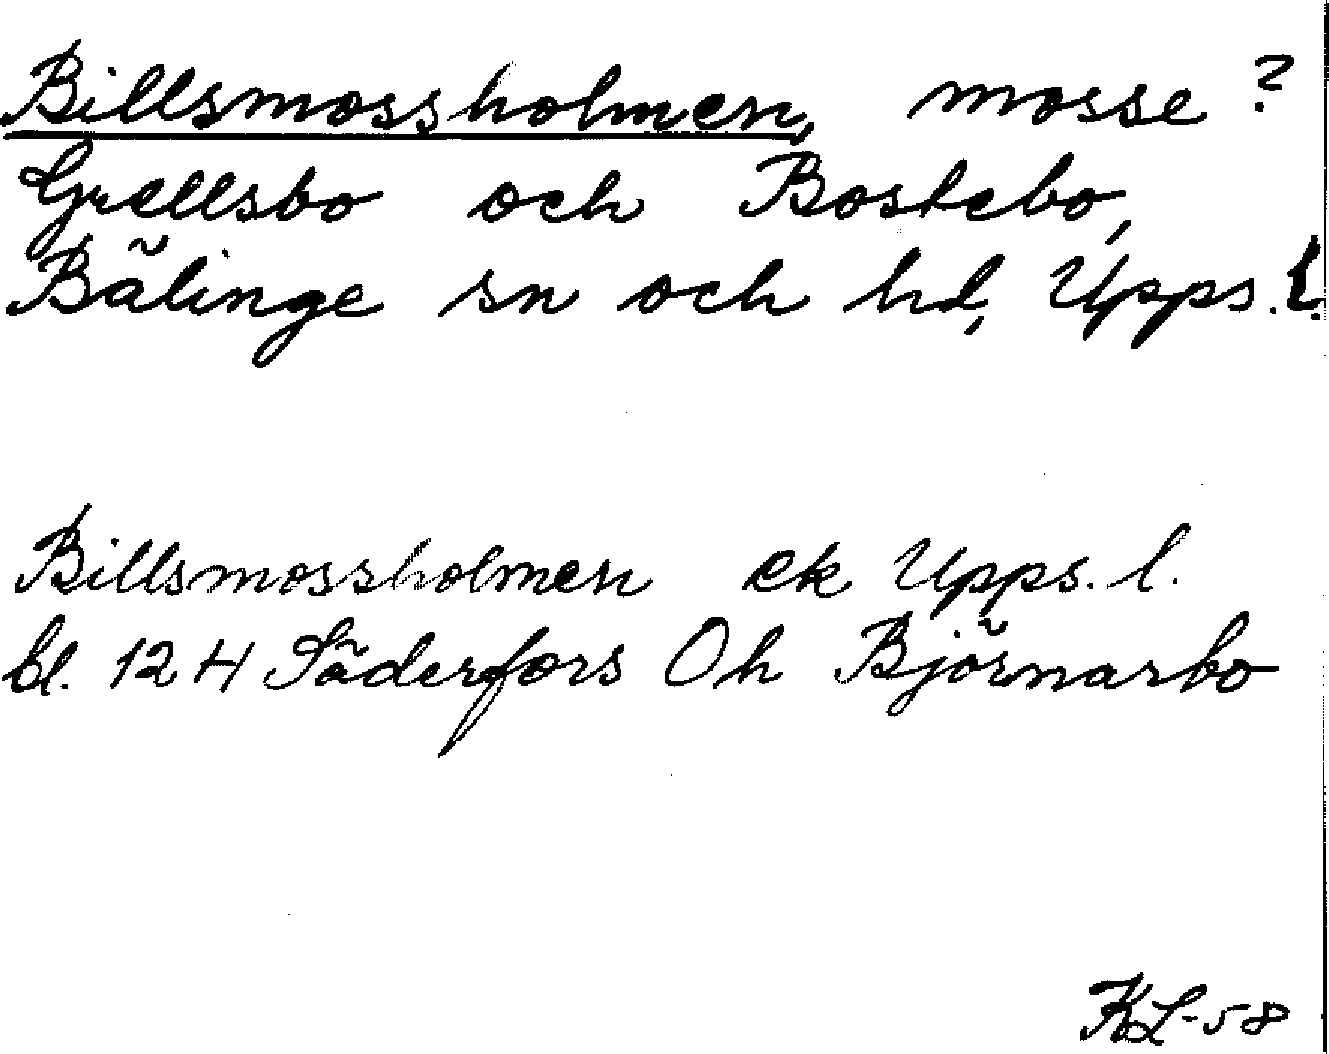 Billsmossholmen, mosse?
Grellsbo och Bostebo,
Bälinge sn och hd, Upps. l.
Billsmossholmen ek Upps. l.
bl. 124 Söderfors Oh Björnarbo
KL-58